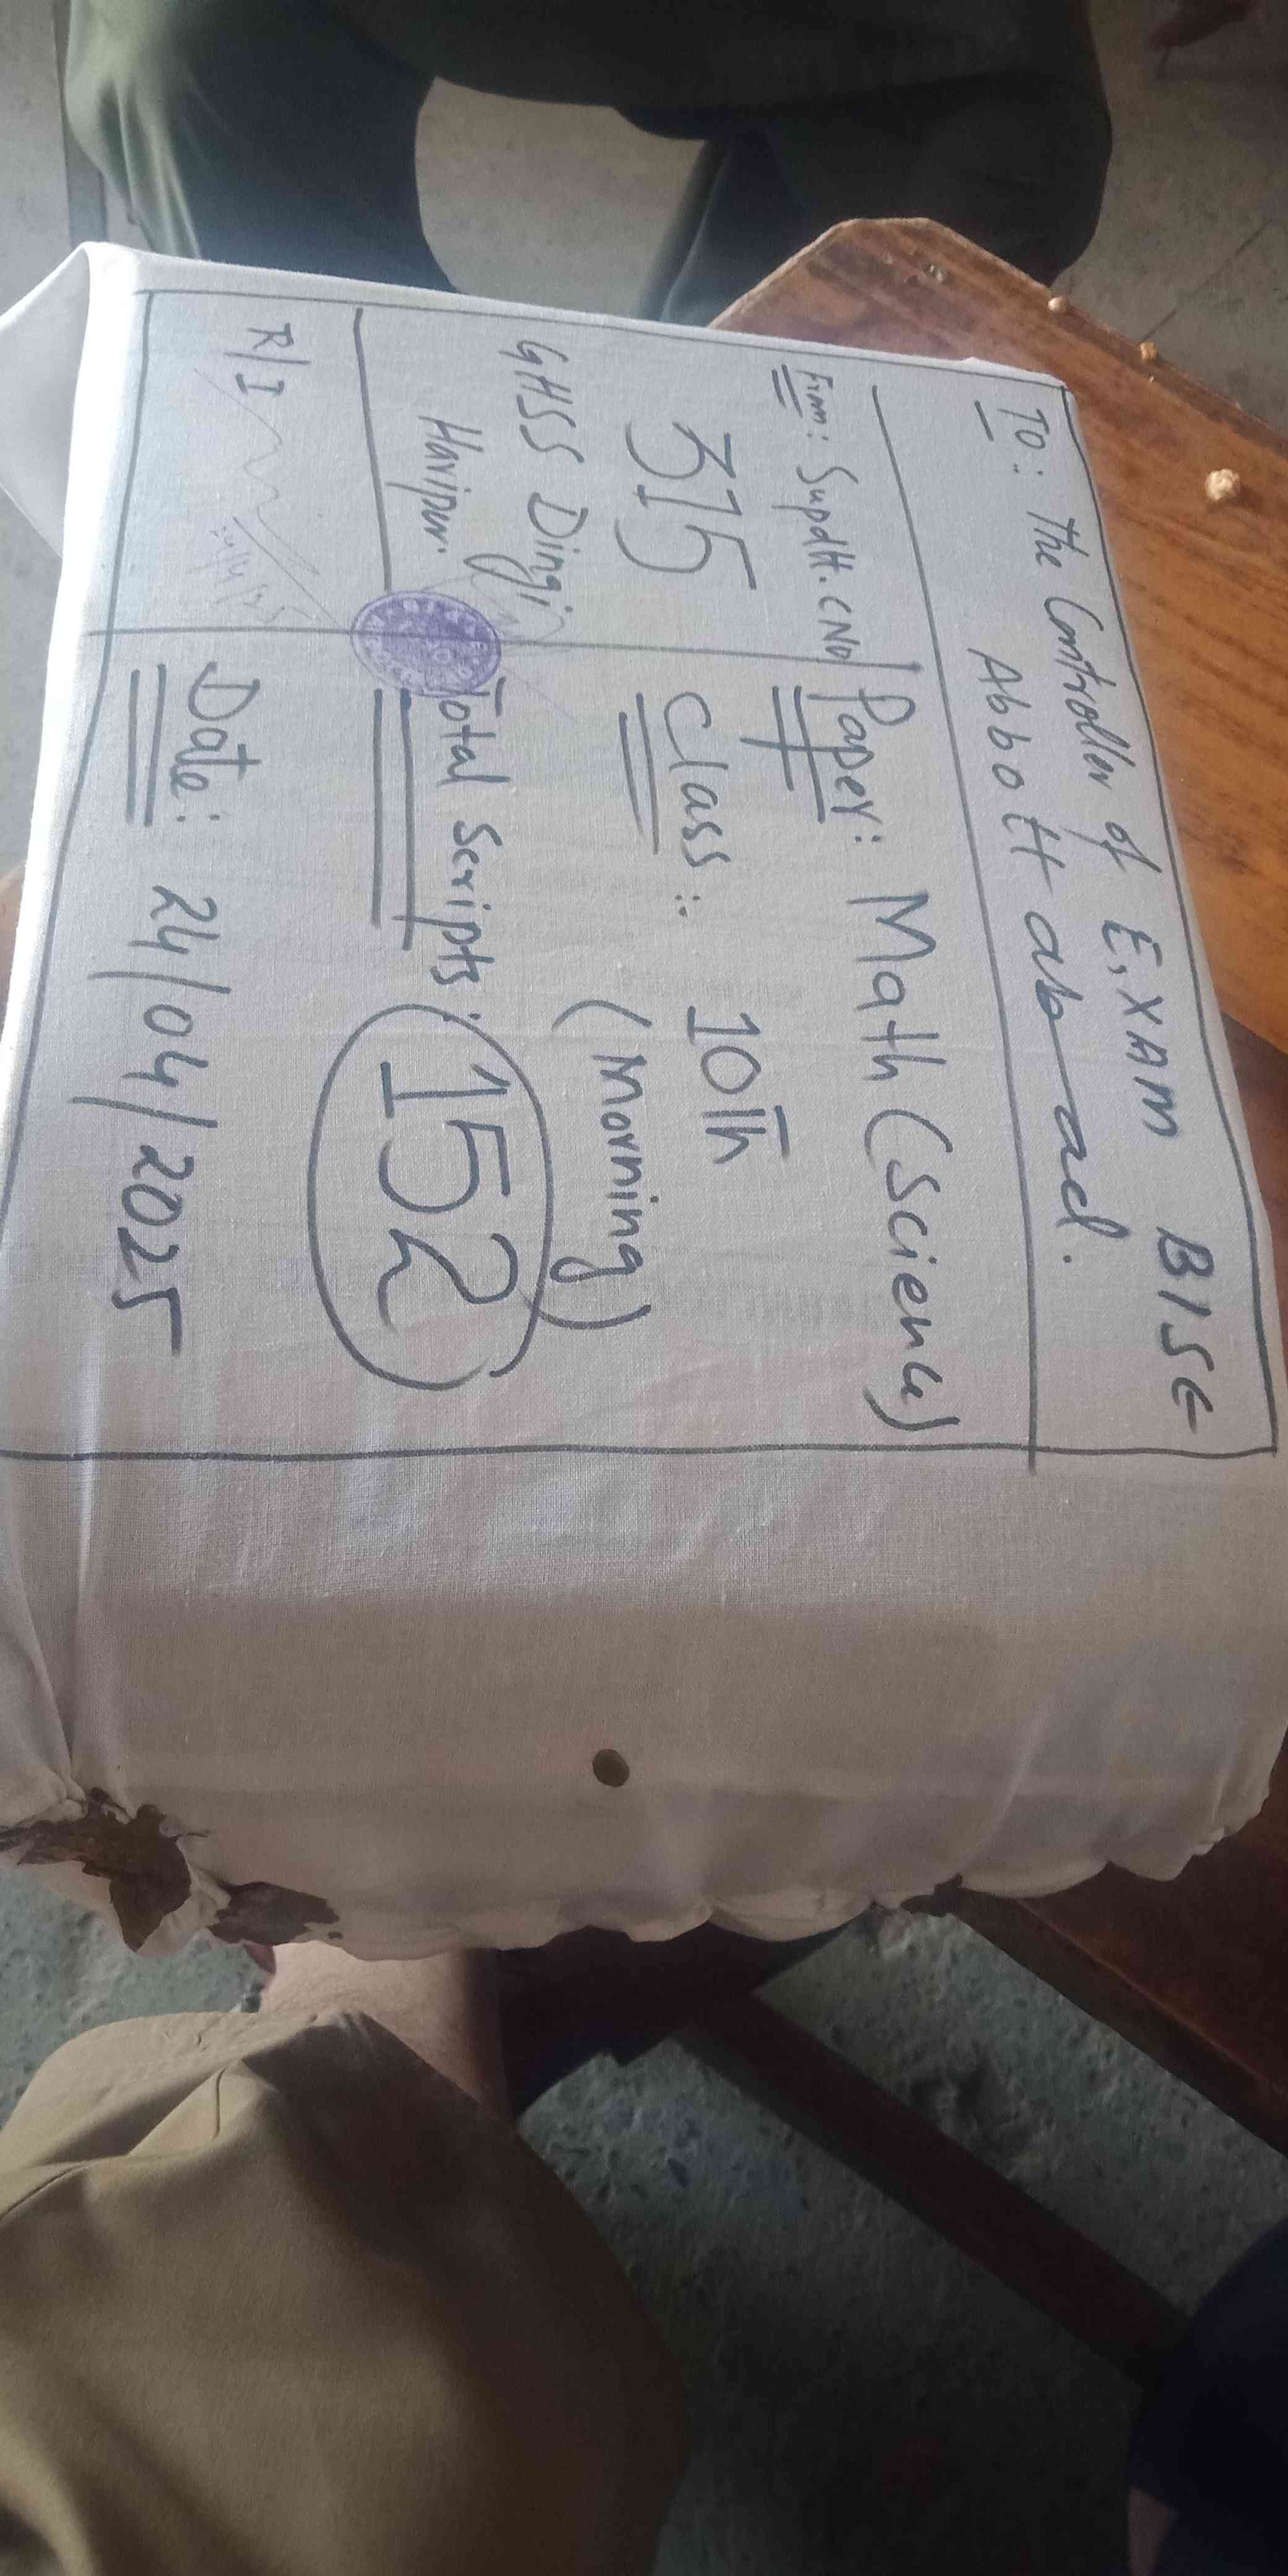 To: The Controller of E,XAM BISE
Abbottabad.
From: Supdtt. C No
315
GHSS Dingi
Haripur.
R/I
24/4/25
Paper: Math (Science)
Class: 10th
(Morning)
Total Scripts: 152
Date: 24/04/2025